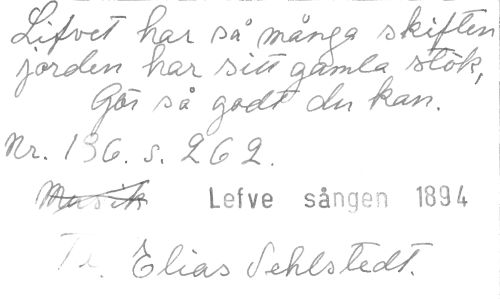 Lifvet har så många skiften
jorden har sitt gamla stök,
Gör så godt du kan.
Nr. 136. s. 262.
Musik Lefve sången 1894
T. Elias Sehlstedt.